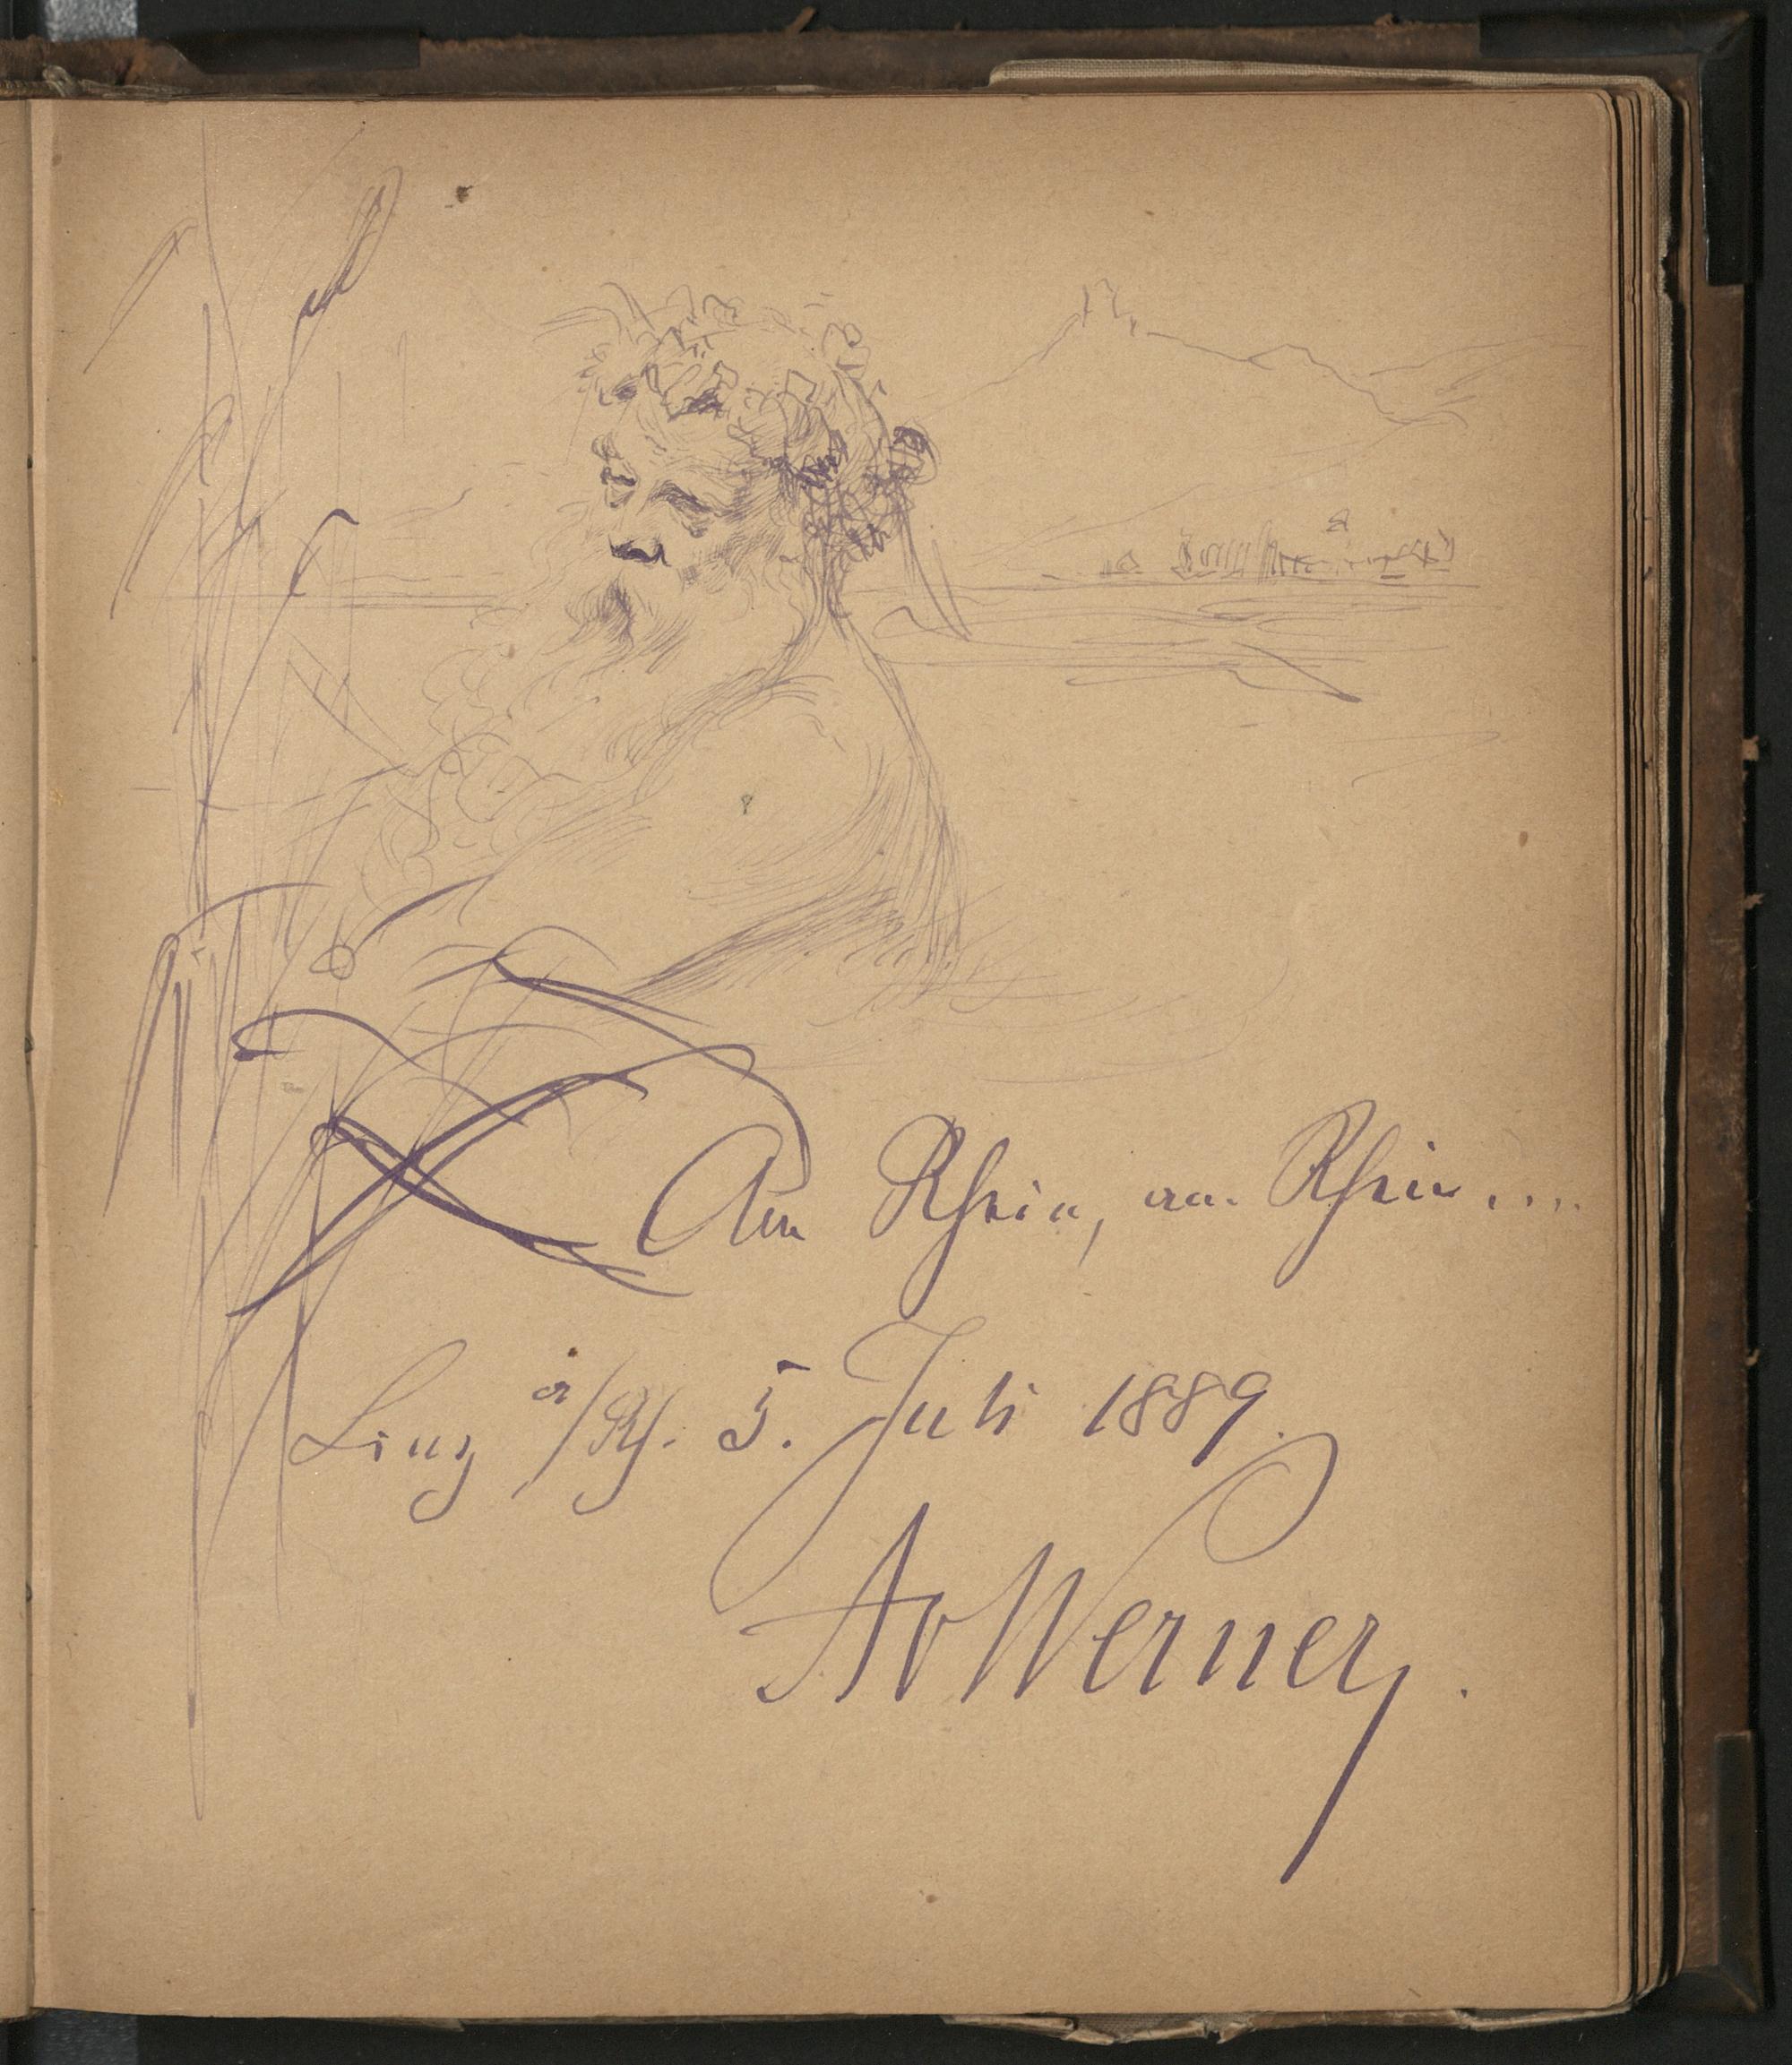 Am Rhein, am Rhein....
Linz a/Rh. 5. Juli 1889.
AvWerner.